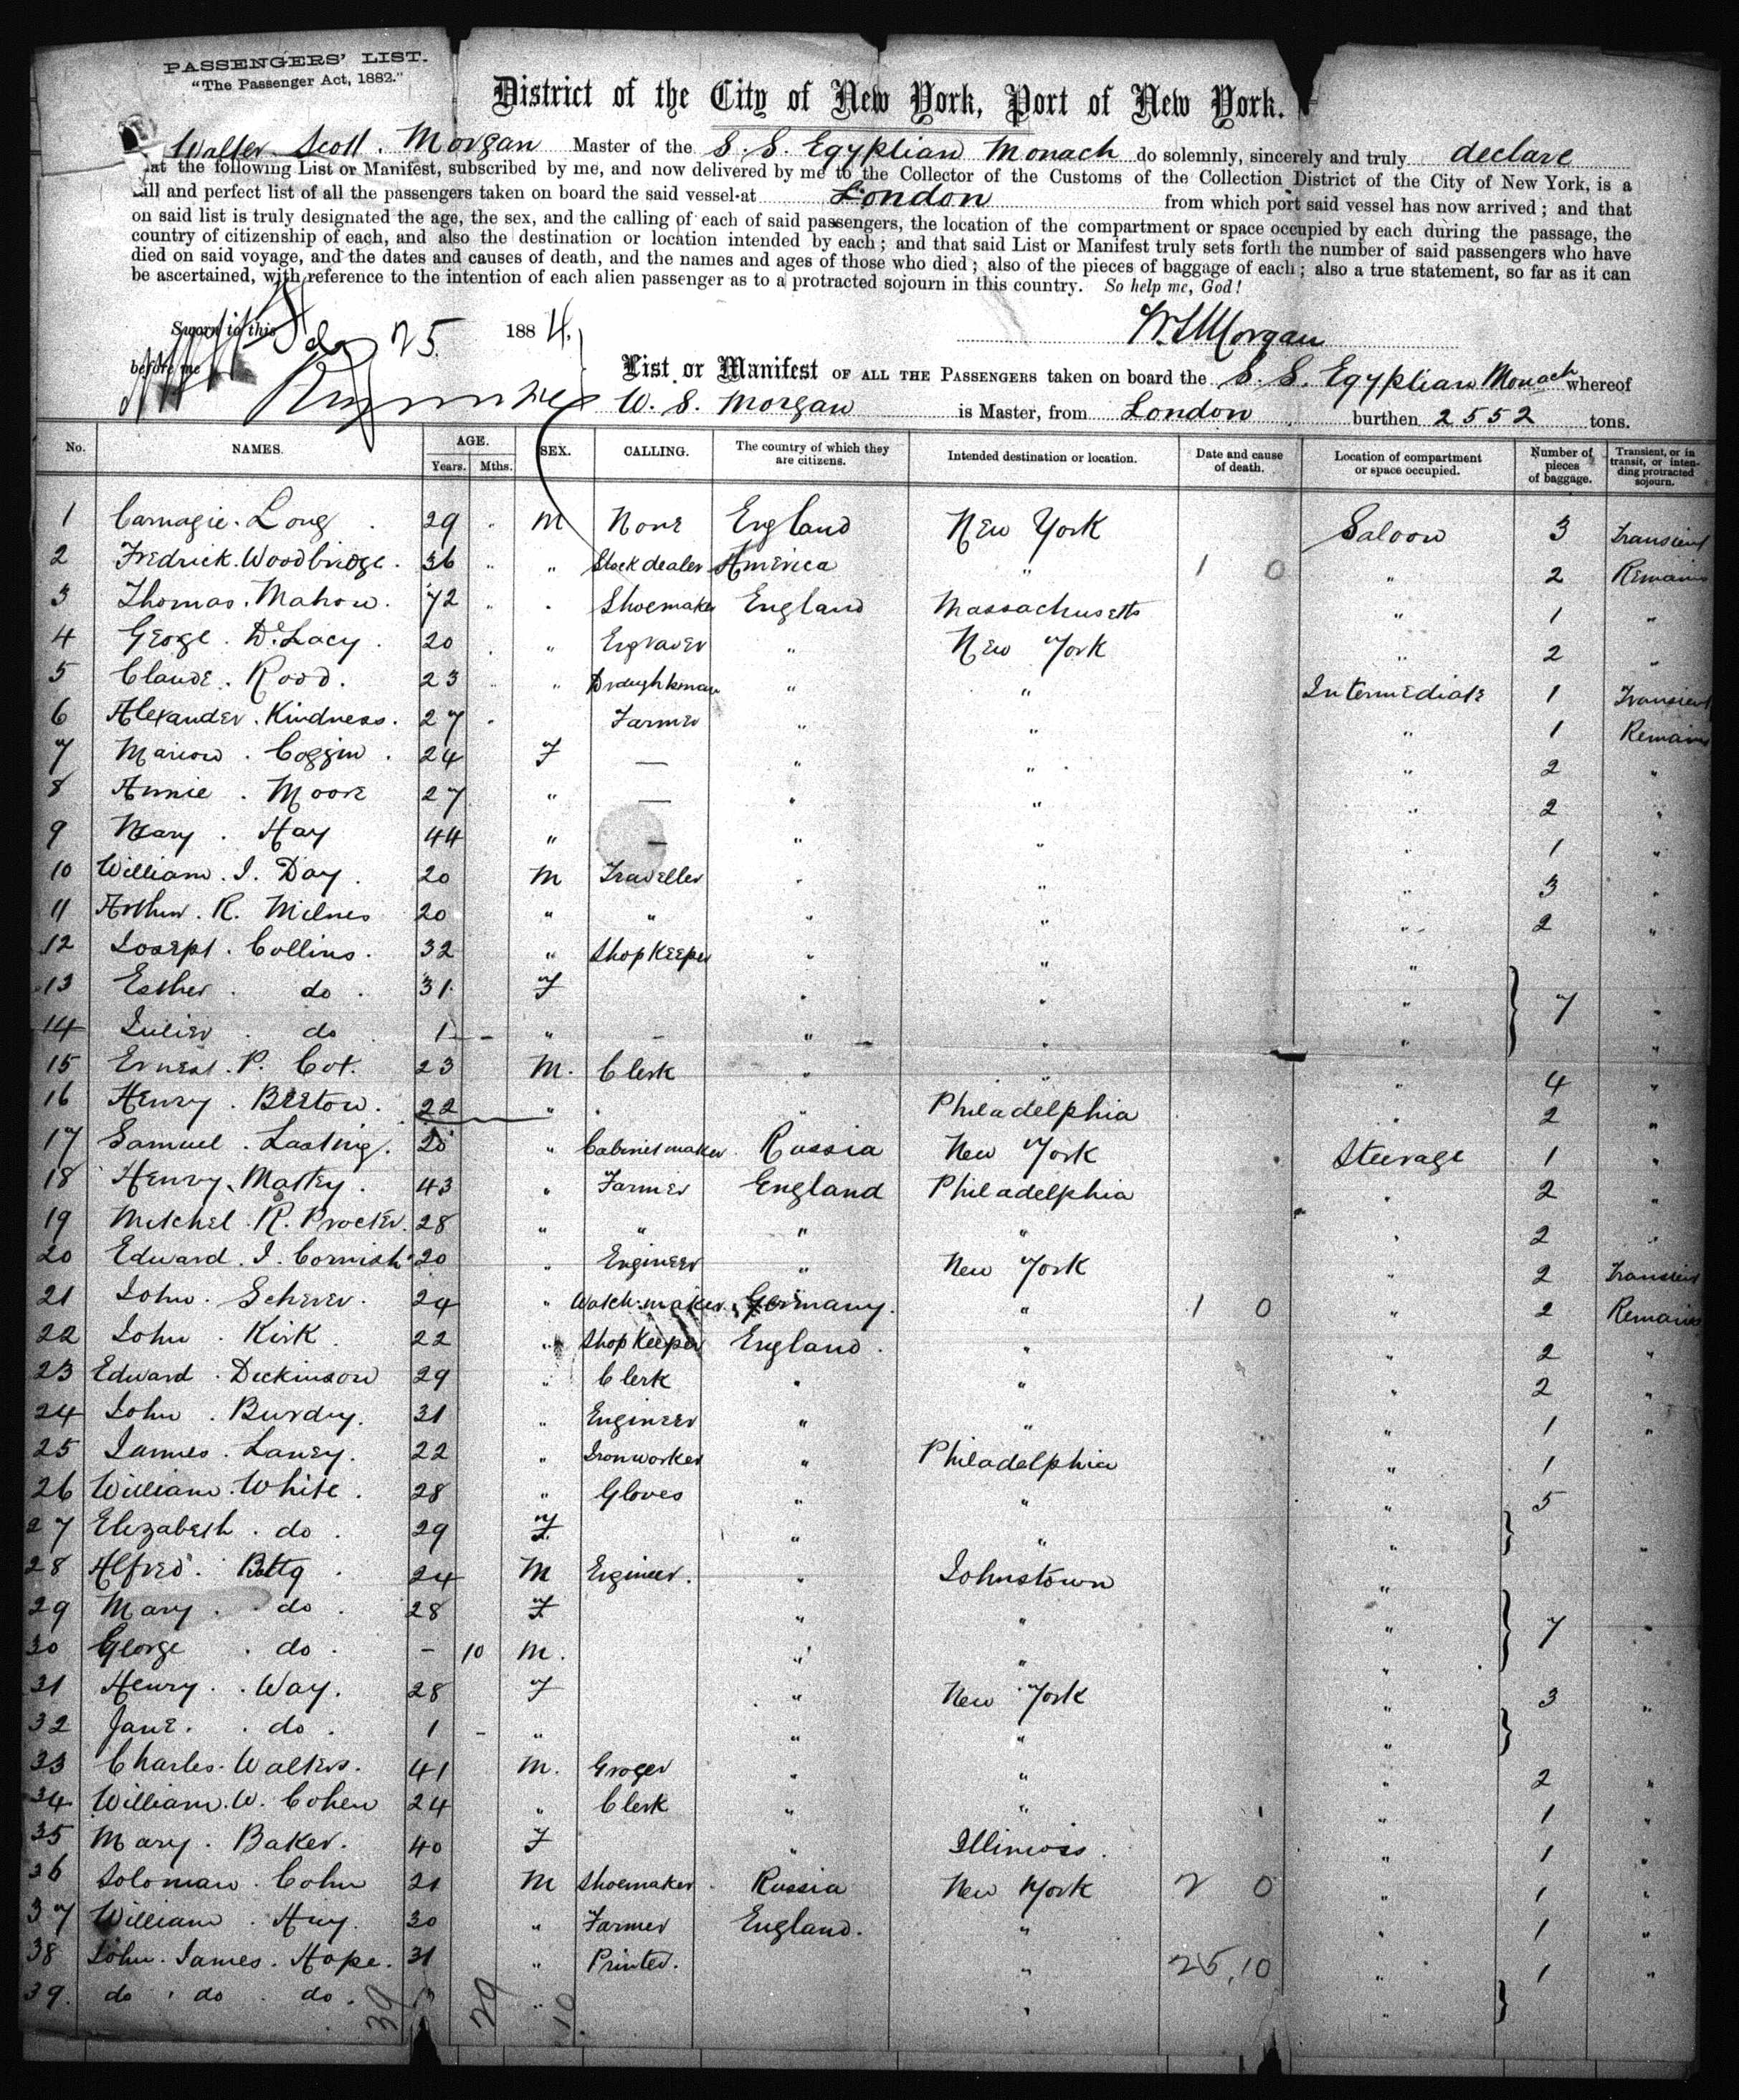 PASSENGERS' LIST.
"The Passenger Act, 1882."
District of the City of New York, Port of New York.
Walter Scott. Morgan Master of the S. S. Egyptian Monach do solemnly, sincerely and truly declare
at the following List or Manifest, subscribed by me, and now delivered by me to the Collector of the Customs of the Collection District of the City of New York, is a
ull and perfect list of all the passengers taken on board the said vessel at London from which port said vessel has now arrived; and that
on said list is truly designated the age, the sex, and the calling of each of said passengers, the location of the compartment or space occupied by each during the passage, the
country of citizenship of each, and also the destination or location intended by each; and that said List or Manifest truly sets forth the number of said passengers who have
died on said voyage, and the dates and causes of death, and the names and ages of those who died; also of the pieces of baggage of each; also a true statement, so far as it can
be ascertained, with reference to the intention of each alien passenger as to a protracted sojourn in this country. So help me, God!
Sworn to this 25 1884
W. S. Morgan
before me
List or Manifest OF ALL THE PASSENGERS taken on board the S. S. Egyptian Monach whereof
W. S. Morgan is Master, from London burthen 2552 tons.
No. NAMES. AGE. Years. Mths. SEX. CALLING. The country of which they are citizens. Intended destination or location. Date and cause of death. Location of compartment or space occupied. Number of pieces of baggage. Transient, or in transit, or intending protracted sojourn.
1 Carnagie. Long. 29 " M None England New York Saloon 3 Transient
2 Fredrick. Woodbridge. 36 " " Stock dealer America " 1 0 " 2 Remains
3 Thomas. Mahon. 72 " " Shoemaker England Massachusetts 1 "
4 George. De Lacy. 20 " Engraver " New York " 2 "
5 Claude. Rood. 23 " " Draughtsman " " Intermediate 1 Transient
6 Alexander. Kindness. 27 Farmer " " " 1 Remains
7 Marion. Coggin. 24 F — " " " 2 "
8 Annie. Moore 27 " — " " " 2 "
9 Mary. Hay 44 " — " " " 1 "
10 William. I. Day. 20 M Traveller " " " 3 "
11 Arthur. R. Milnes 20 " " " " " 2 "
12 Joseph. Collins. 32 " Shop Keeper " " "
13 Esther. do. 31 F " " " 7 "
14 do 1 - " - " " " "
15 Ernest. P. Cot. 23 M. Clerk " " " 4 "
16 Henry. Beeton. 22 " " " Philadelphia " 2 "
17 Samuel. Lasting. 20 " Cabinetmaker Russia New York Steerage 1 "
18 Henry. Mattey. 43 " Farmer England Philadelphia " 2 "
19 Mitchel. R. Procter. 28 " " " " " 2 "
20 Edward. J. Cornish 20 " Engineer " New York " 2 Transient
21 John. Scherer. 24 " Watch-maker Germany. " 1 0 " 2 Remains
22 John. Kirk. 22 " Shop Keeper England. " " 2 "
23 Edward. Dickinson 29 " Clerk " " " 2 "
24 John. Burdry. 31 " Engineer " " " 1 "
25 James. Laney. 22 " Ironworker " Philadelphia " 1
26 William. White. 28 " Gloves " " " 5
27 Elizabeth. do. 29 F. " " "
28 Alfred. 24 M Engineer. " Johnstown "
29 Mary. do. 28 F. " " " 7 "
30 George. do. - 10 M. " " "
31 Henry. Way. 28 F " New York " 3 "
32 Jane. do. 1 - " " " "
33 Charles. Walters. 41 M. Grocer " " " 2 "
34 William. W. Cohen 24 " Clerk " " " 1 "
35 Mary. Baker. 40 F " Illinois. " 1 "
36 Soloman. Cohn 21 M Shoemaker. Russia New York 2 0 " 1 "
37 William. Huy. 30 " Farmer England. " " 1 "
38 John. James. Hope. 31 " Printer. " 25,10 " 1 "
39. do. do. do. " " "
39 29 10